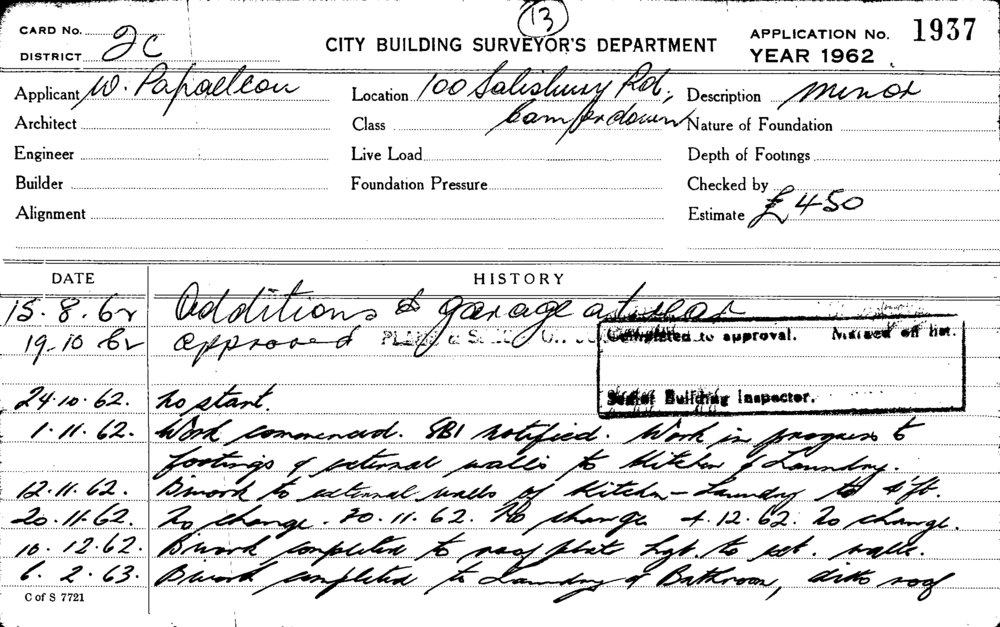 13
CARD No. 2C
DISTRICT
CITY BUILDING SURVEYOR'S DEPARTMENT
APPLICATION No. 1937
YEAR 1962
Applicant W. Papaelleou Location 100 Salisbury Rd, Description minor
Architect Class Camperdown Nature of Foundation
Engineer Live Load Depth of Footings
Builder Foundation Pressure Checked by
Alignment Estimate £450
DATE HISTORY
15.8.62 Additions & garage at rear
19.10 62 approved
Completed to approval. Marked off list.
Senior Building Inspector.
24.10.62. No start.
1.11.62. Work commenced. SBI notified. Work in progress to
footings of external walls to Kitchen & Laundry.
12.11.62. Bwork to external walls of Kitchen-Laundry to 4ft.
20.11.62. No change. 30.11.62. No change 4.12.62. No change.
10.12.62. Bwork completed to roof plate hgt. to ext. walls.
6.2.63. Bwork completed to Laundry & Bathroom, ditto roof
C of S 7721